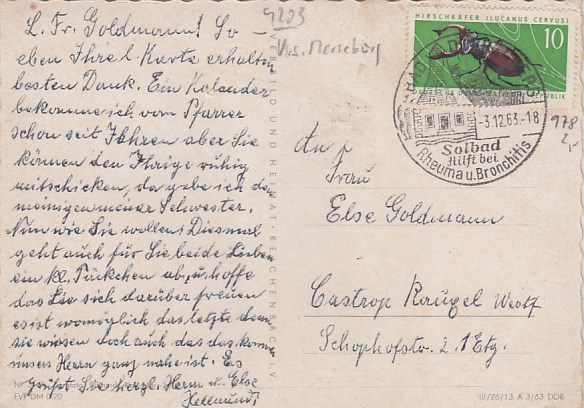 L. Fr. Goldmann! So-
eben Ihre l. Karte erhalten
besten Dank. Ein Kalender
bekomme ich vom Pfarrer
schon seit Jahren aber Sie
können den Ihrige ruhig
mitschicken, da gebe ich den
meinigen meiner Schwester.
Nun wie Sie wollen! Diesmal
geht auch für Sie beide Lieben
ein kl. Päckchen ab, u. hoffe
das Sie sich darüber freuen
es ist womöglich das letzte denn
sie wissen doch auch das das kommen
unsers Herrn ganz nahe ist. Es
grüßt Sie herzl. Herm u. Else
Hellmund!
EVP DM 0,20
BILD UND HEIMAT REICHENBACH I. V.
9203
Krs. Merseburg
HIRSCHKÄFER (LUCANUS CERVUS)
10
-3.12.63.-18
Solbad
Hilft bei
Rheuma u. Bronchitis
978
2,-
An
Frau
Else Goldmann
Castrop Rauxel Westf
Schophofstr. 2. 1 Etg.
III/26/13 A 3/63 DDR